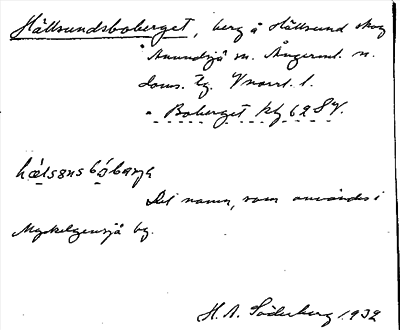 Hällsundsboberget, berg å Hällsund skog
Anundsjö sn. Ångerml. n.
doms. tg. Vnorrl. l.
= Boberget kbl 62 SV.
Det namn, som användes i
Myckelgensjö by.
H. A. Söderberg 1932